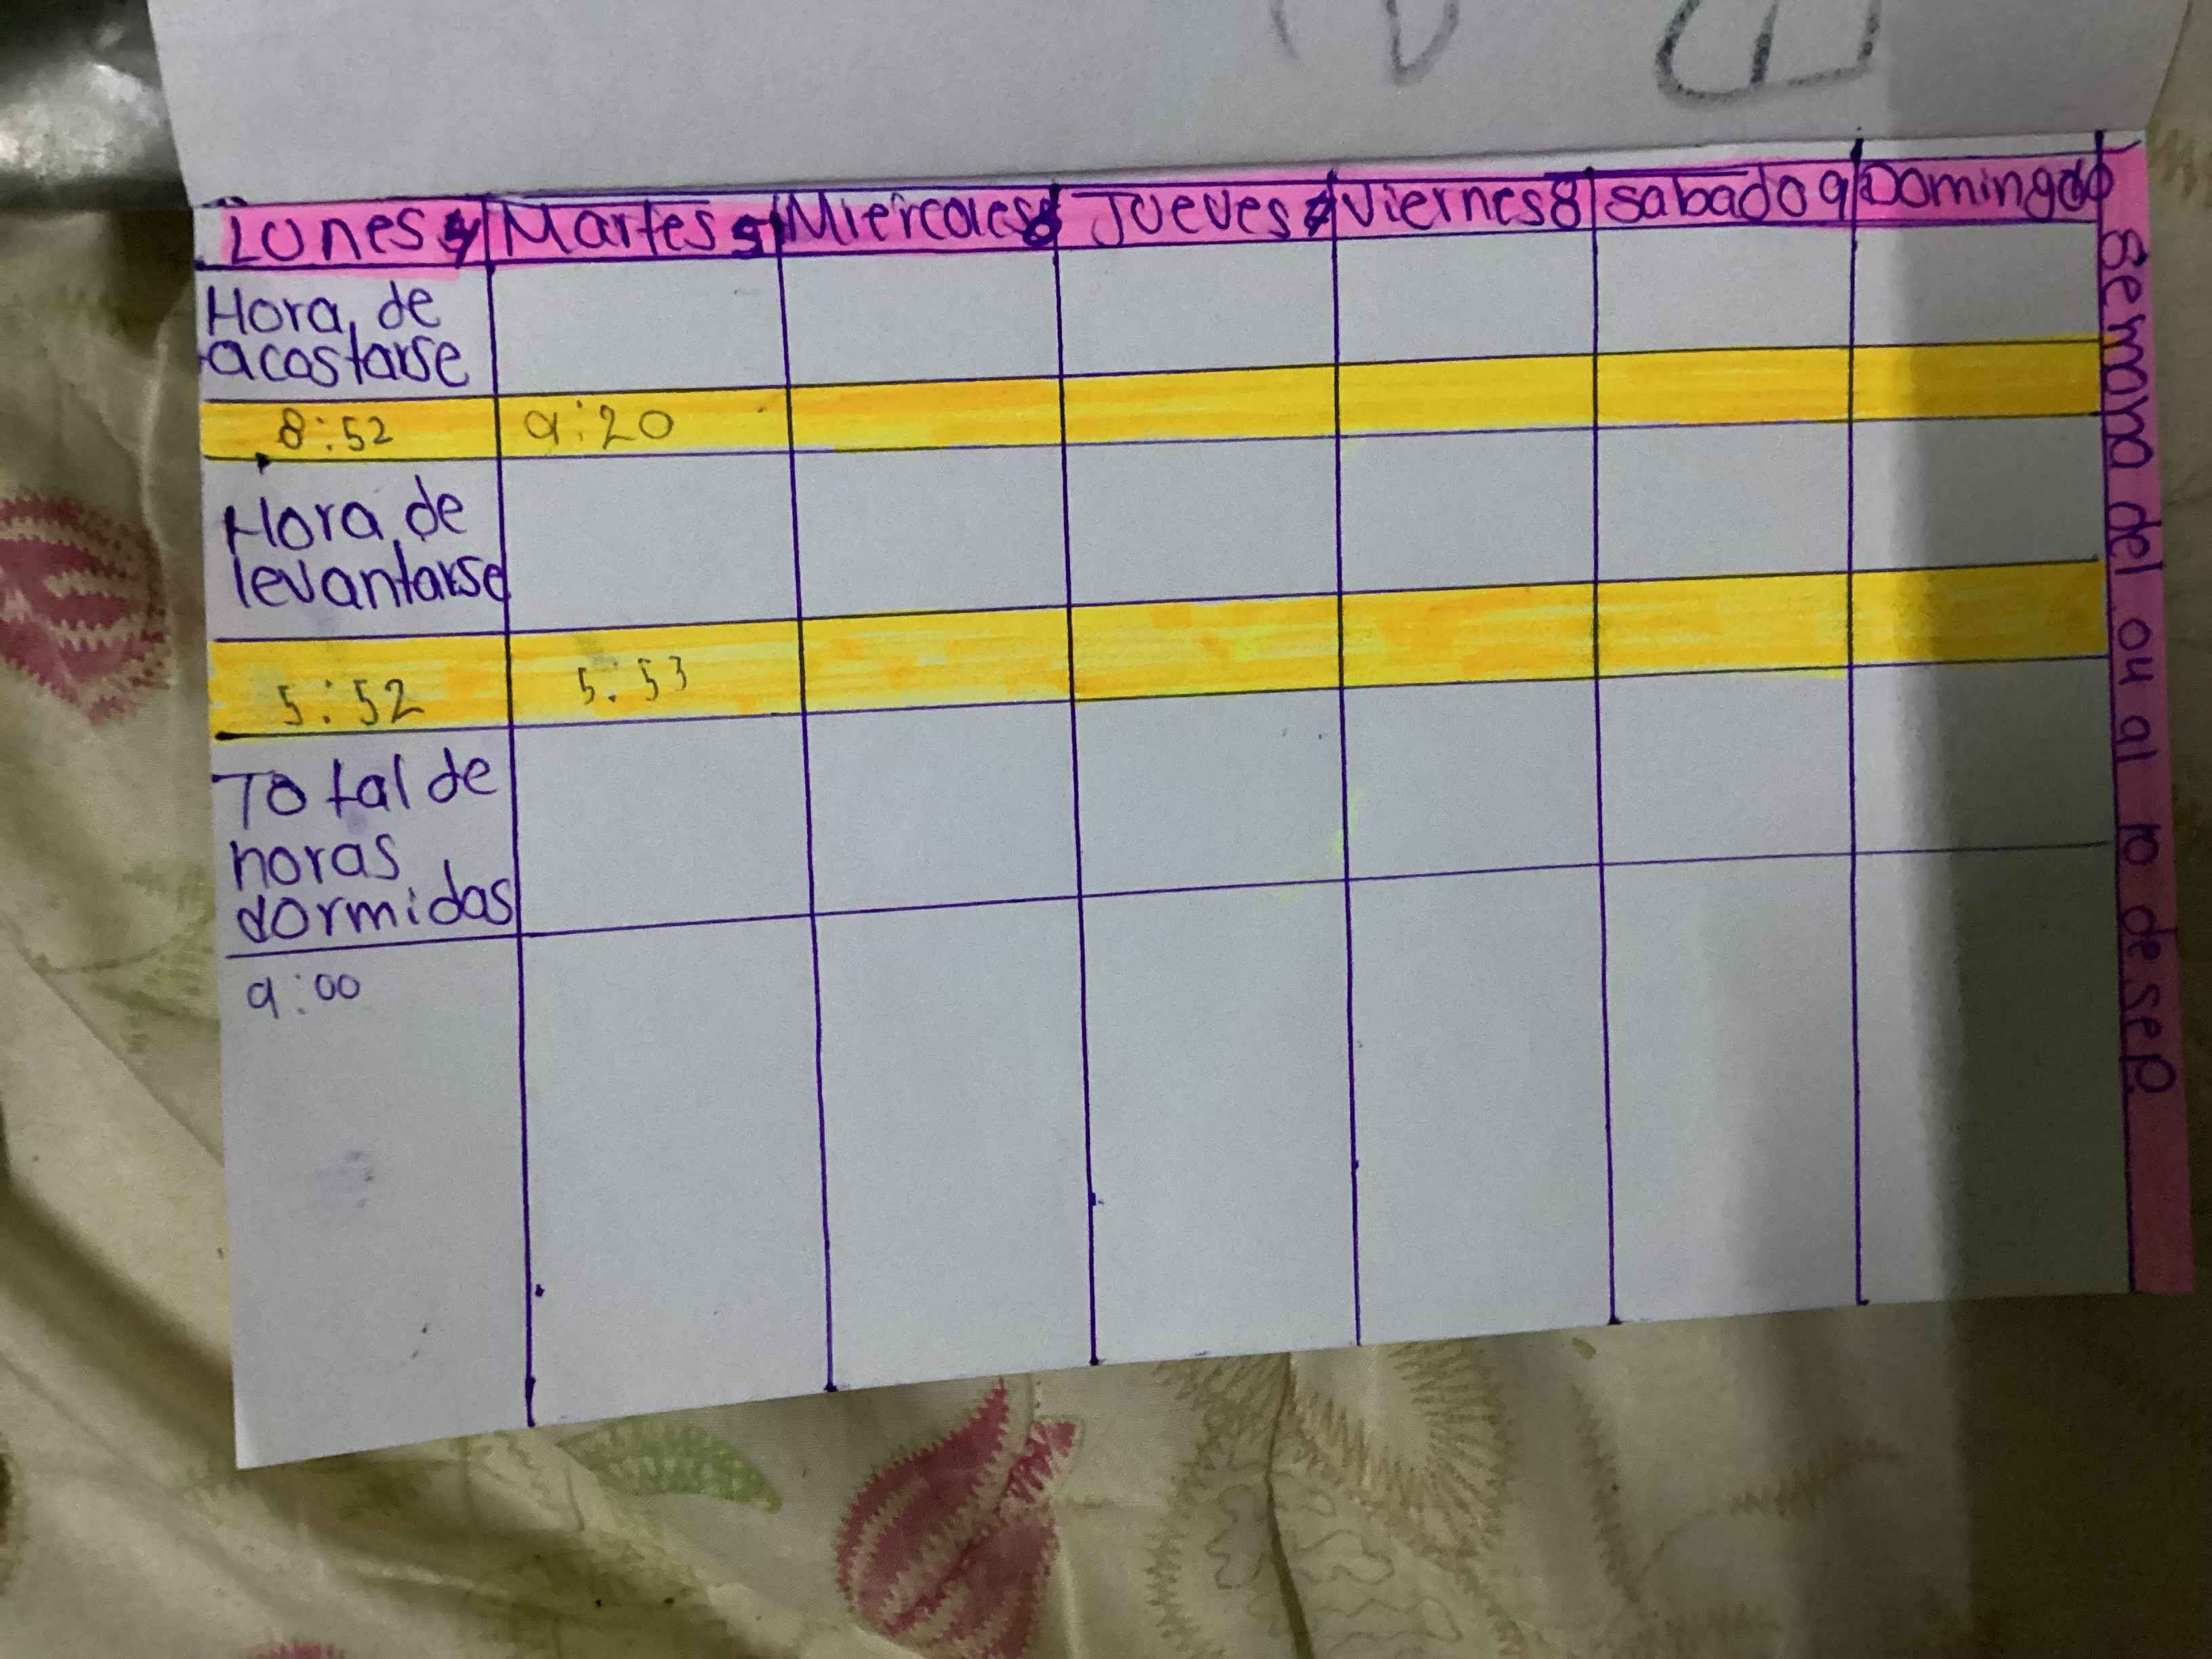 Lunes 4 Martes 5 Miercoles 6 Jueves 7 Viernes 8 sabado 9 Domingo 10
Hora de
acostarse
8:52 9:20
Hora de
levantarse
5:52 5:53
Total de
horas
dormidas
9:00
Semana del 04 al 10 de sep